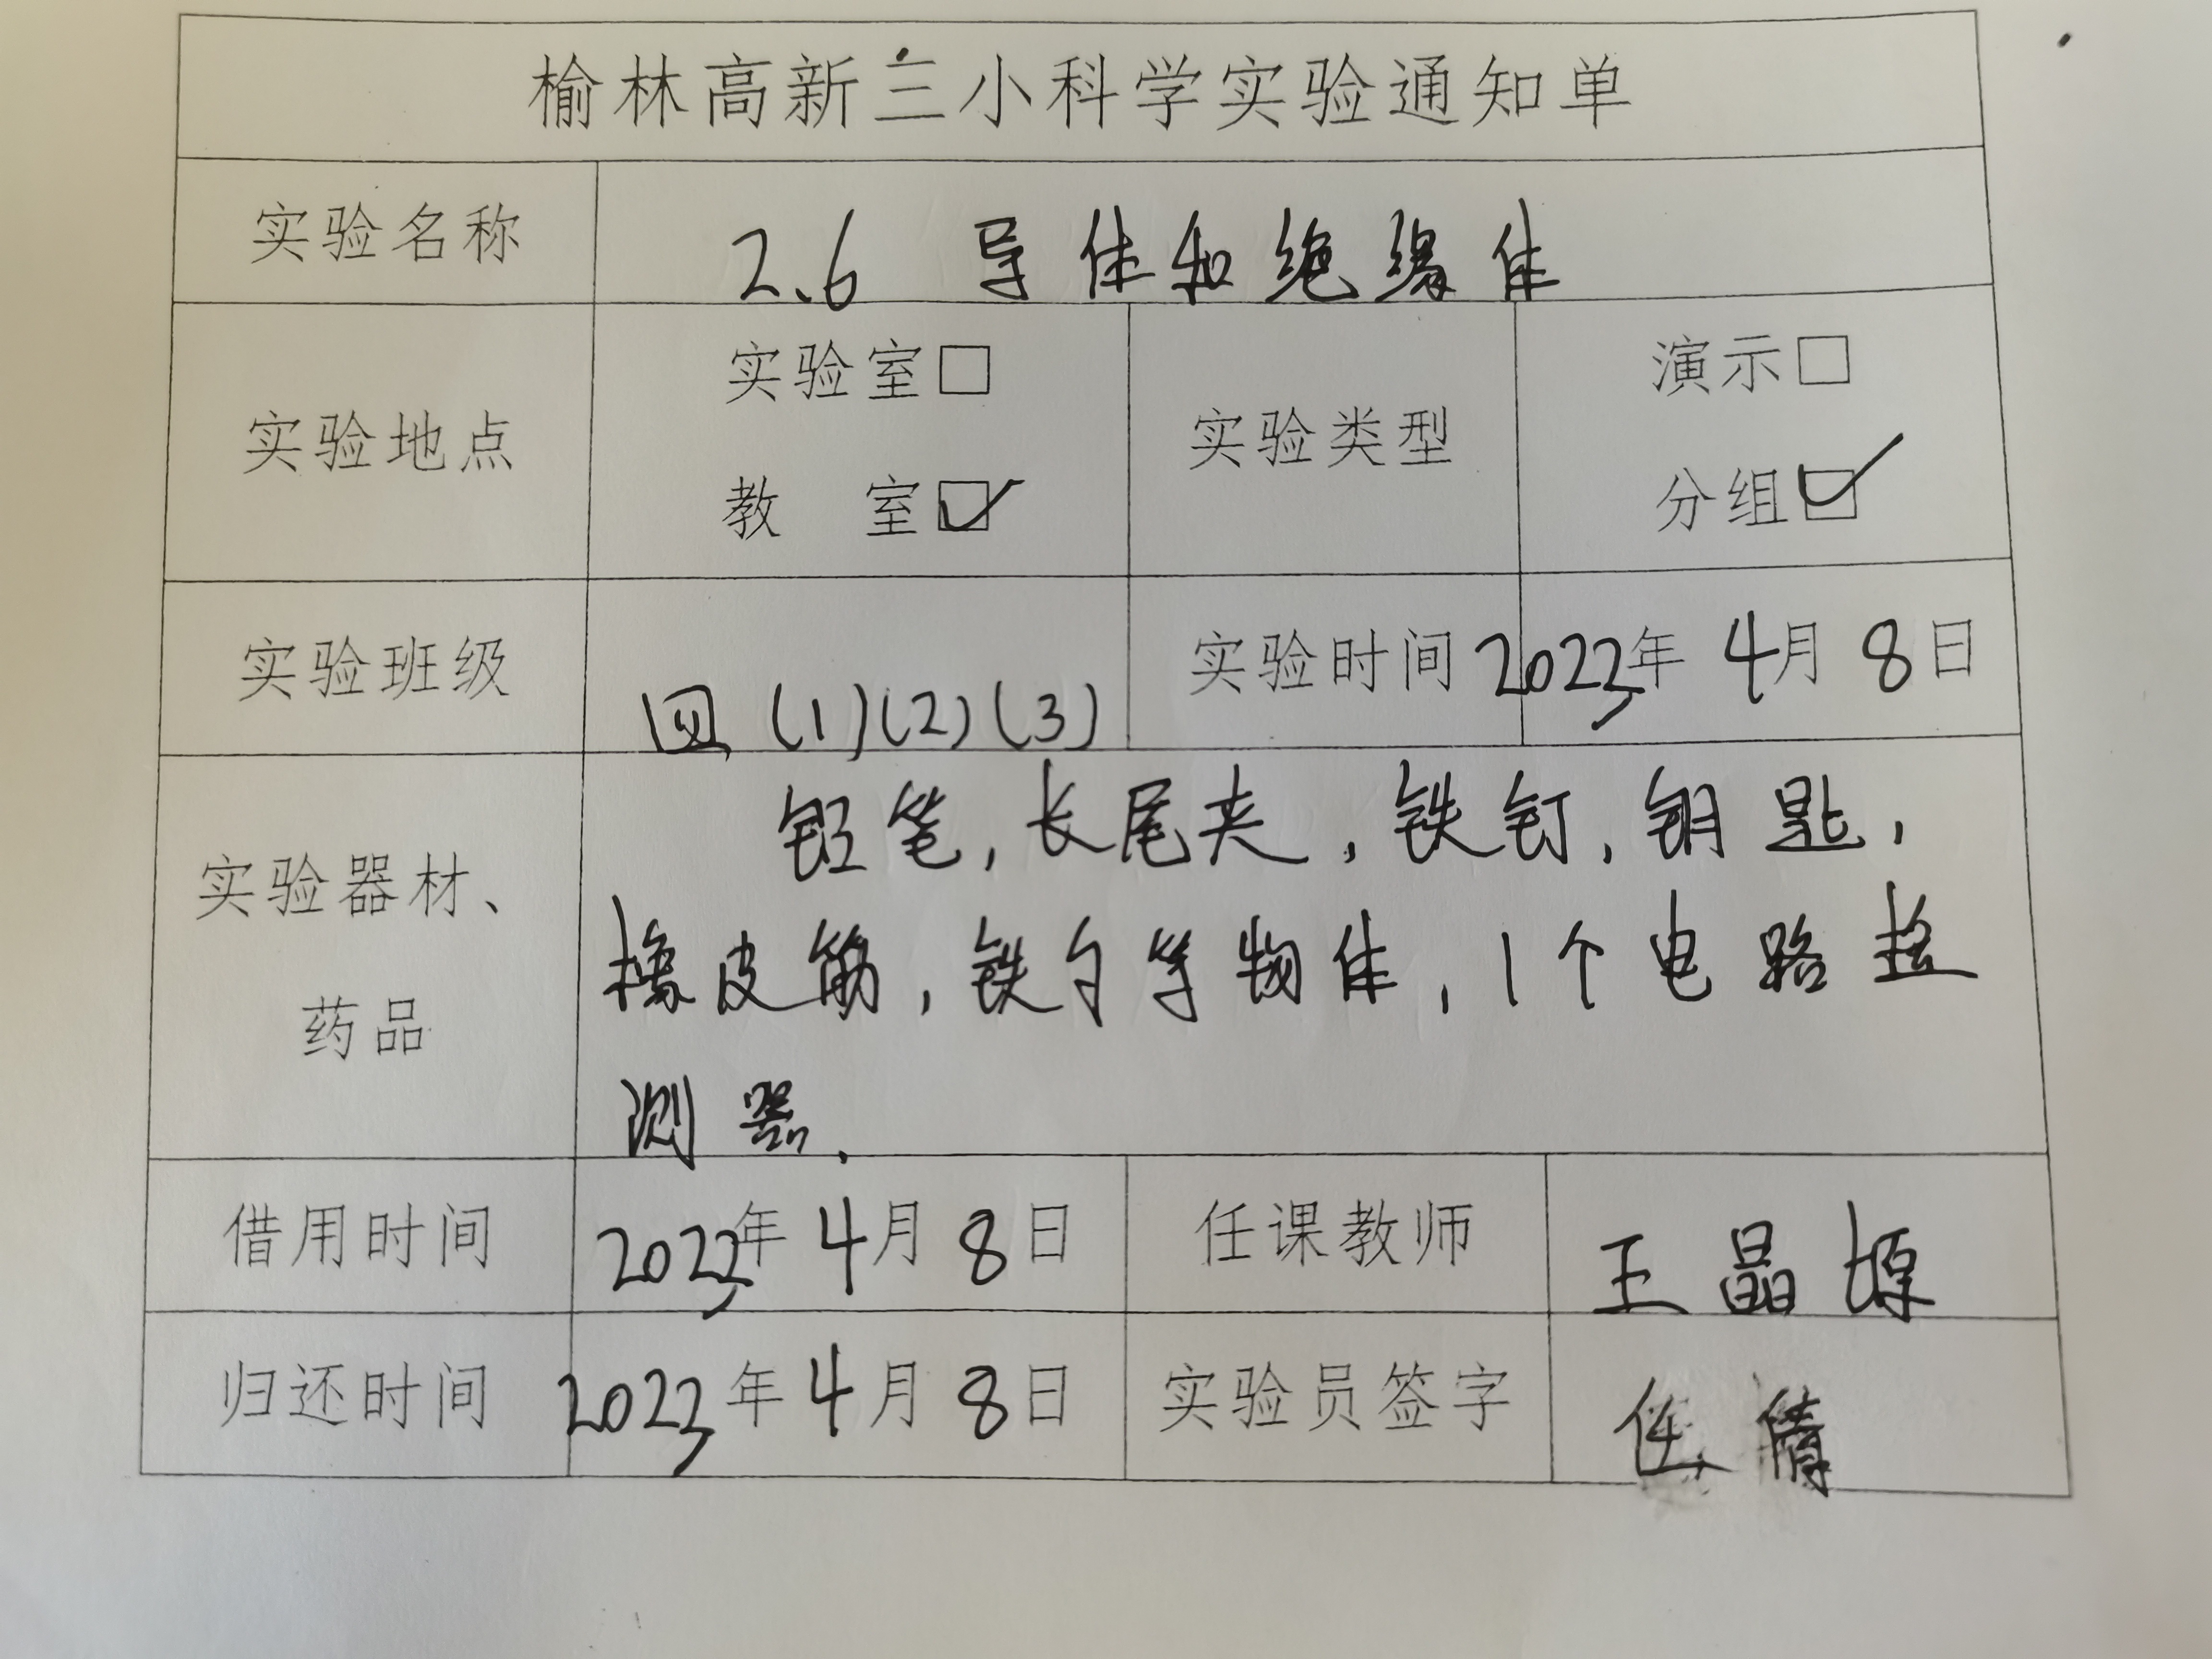 榆林高新三小科学实验通知单
实验名称 2.6 导体和绝缘体
实验地点 实验室□ 教 室☑ 实验类型 演示□ 分组☑
实验班级 四(1)(2)(3) 实验时间 2023年 4月 8日
实验器材、药品
铅笔,长尾夹,铁钉,钥匙,
橡皮筋,铁勺等物体,1个电路检
测器.
借用时间 2023年 4月 8日 任课教师 王晶
归还时间 2023年 4月 8日 实验员签字 任倩